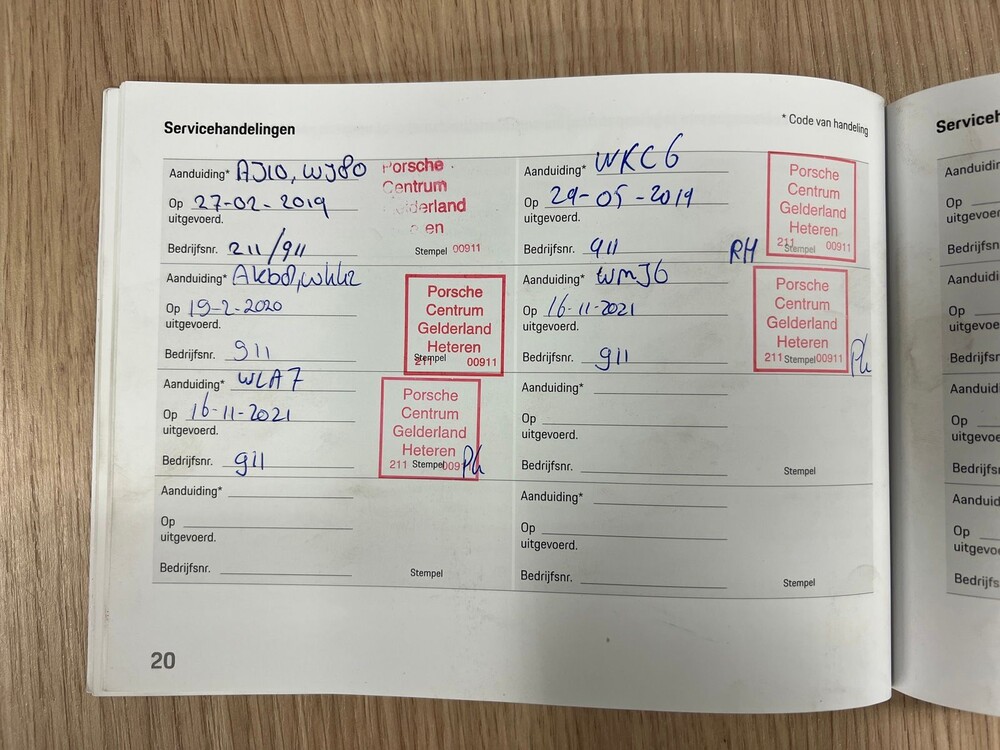 Servicehandelingen
* Code van handeling
Aanduiding* AJ10, WJ80
Op 27-02-2019
uitgevoerd.
Bedrijfsnr. 211/911
Porsche
Centrum
Gelderland
en
Stempel 00911
Aanduiding* WKC6
Op 29-05-2019
uitgevoerd.
Bedrijfsnr. 911
RH
Porsche
Centrum
Gelderland
Heteren
211 Stempel 00911
Aanduiding*
Op 19-2-2020
uitgevoerd.
Bedrijfsnr. 911
Porsche
Centrum
Gelderland
Heteren
211 Stempel 00911
Aanduiding* WMJ6
Op 16-11-2021
uitgevoerd.
Bedrijfsnr. 911
Porsche
Centrum
Gelderland
Heteren
211 Stempel 00911
Aanduiding* WLA7
Op 16-11-2021
uitgevoerd.
Bedrijfsnr. 911
Porsche
Centrum
Gelderland
Heteren
211 Stempel 009
Aanduiding*
Op
uitgevoerd.
Bedrijfsnr.
Stempel
Aanduiding*
Op
uitgevoerd.
Bedrijfsnr.
Stempel
Aanduiding*
Op
uitgevoerd.
Bedrijfsnr.
Stempel
20
Serviceh
Aanduidin
Op
uitgevoe
Bedrijfsn
Aanduidi
Op
uitgevoe
Bedrijfsn
Aanduid
Op
uitgevo
Bedrijfs
Aanduid
Op
uitgevo
Bedrijfs